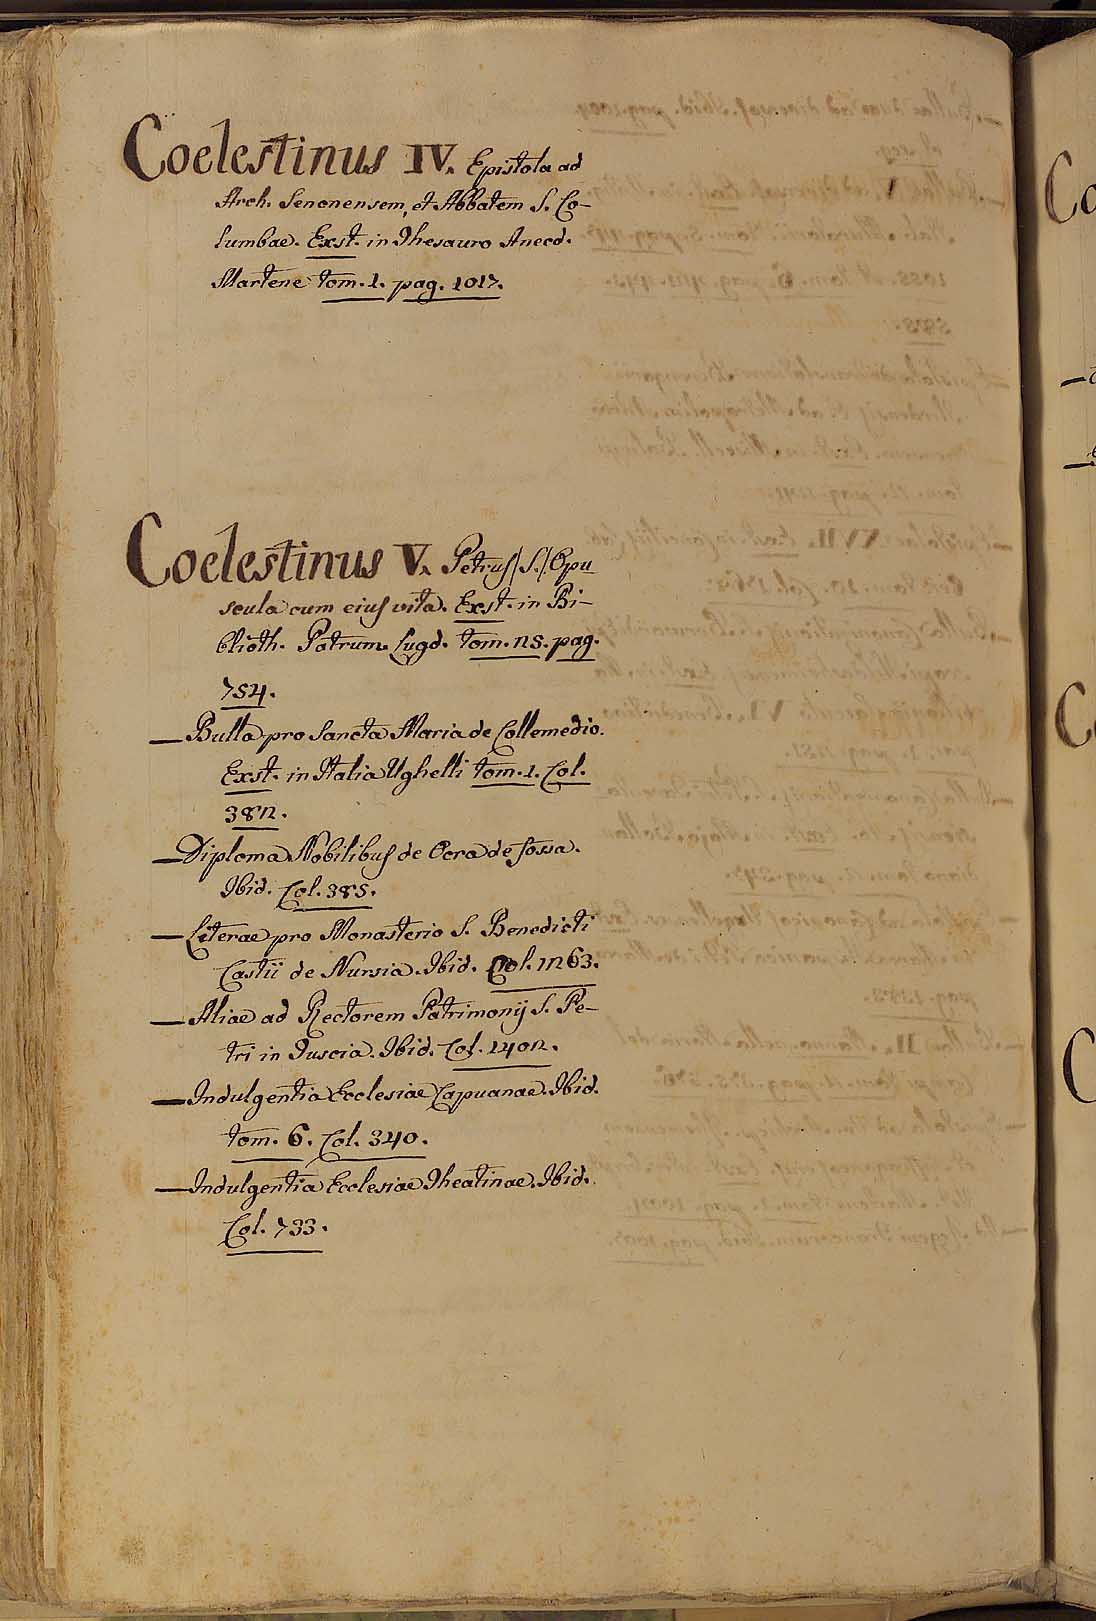 Coelestinus IV. Epistola ad
Arch. Senonensem, et Abbatem S. Co-
lumbae. Exst. in Thesauro Anecd.
Martene tom. 1. pag. 1017.
Coelestinus V. Petrus /S./ Opu
scula cum eius vita. Exst. in Bi-
blioth. Patrum Lugd. tom. 25. pag.
754.
— Bulla pro Sancta Maria de Collemedio.
Exst. in Italia Ughelli tom. 1. Col.
382.
— Diploma Nobilibus de Ocra de fossa.
Ibid. Col. 385.
— Literae pro Monasterio S. Benedicti
Castii de Nursia. Ibid. Col. 1263.
— Aliae ad Rectorem Patrimonij S. Pe-
tri in Tuscia. Ibid. Col. 1402.
— Indulgentia Ecclesiae Capuanae. Ibid.
tom. 6. Col. 340.
— Indulgentia Ecclesiae Theatinae. Ibid.
Col. 733.